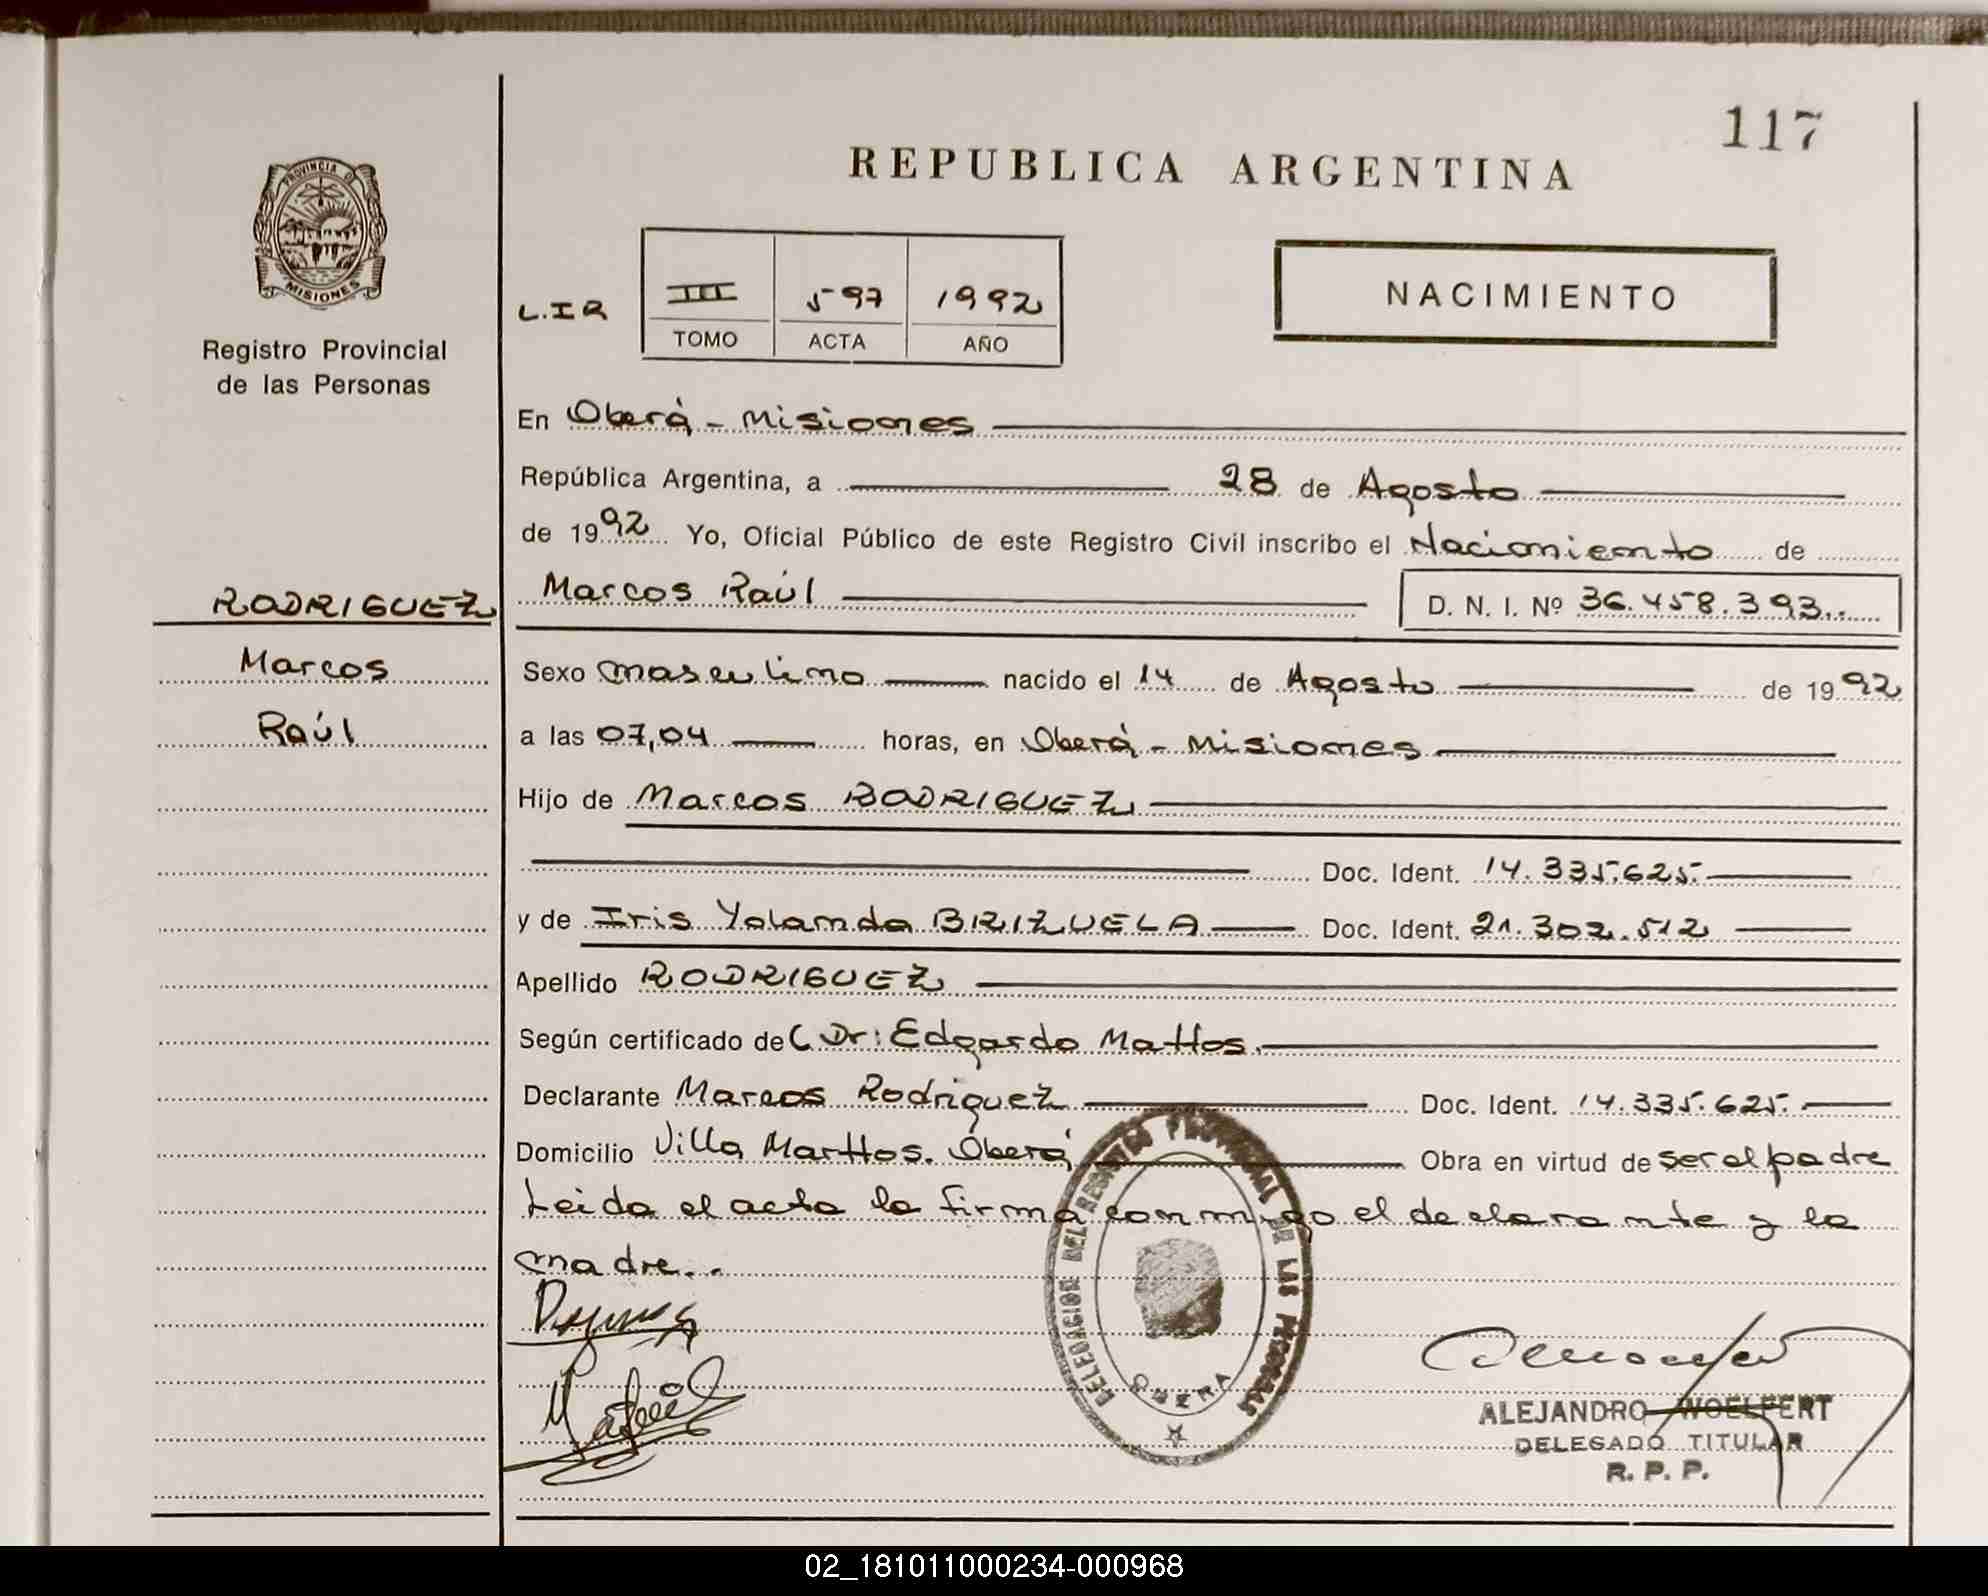 117
REPUBLICA ARGENTINA
PROVINCIA DE
MISIONES
Registro Provincial
de las Personas
L.I.R
III 597 1992
TOMO ACTA AÑO
NACIMIENTO
En Oberá - Misiones
República Argentina, a 28 de Agosto
de 1992 Yo, Oficial Público de este Registro Civil inscribo el Nacimiento de
RODRIGUEZ
Marcos
Raúl
Marcos Raúl D. N. I. Nº 36.458.393..
Sexo masculino nacido el 14 de Agosto de 1992
a las 07,04 horas, en Oberá - Misiones
Hijo de Marcos RODRIGUEZ
Doc. Ident. 14.335.625.
y de Iris Yolanda BRIZUELA Doc. Ident. 21.302.512
Apellido RODRIGUEZ
Según certificado de Dr: Edgardo Mattos.
Declarante Marcos Rodriguez Doc. Ident. 14.335.625.
Domicilio Villa Marttos. Oberá Obra en virtud de ser el padre
Leida el acta la firma conmigo el declarante y la
madre..
DELEGACION DEL REGISTRO PROVINCIAL DE LAS PERSONAS
OBERA
ALEJANDRO WOELFERT
DELEGADO TITULAR
R. P. P.
02_181011000234-000968